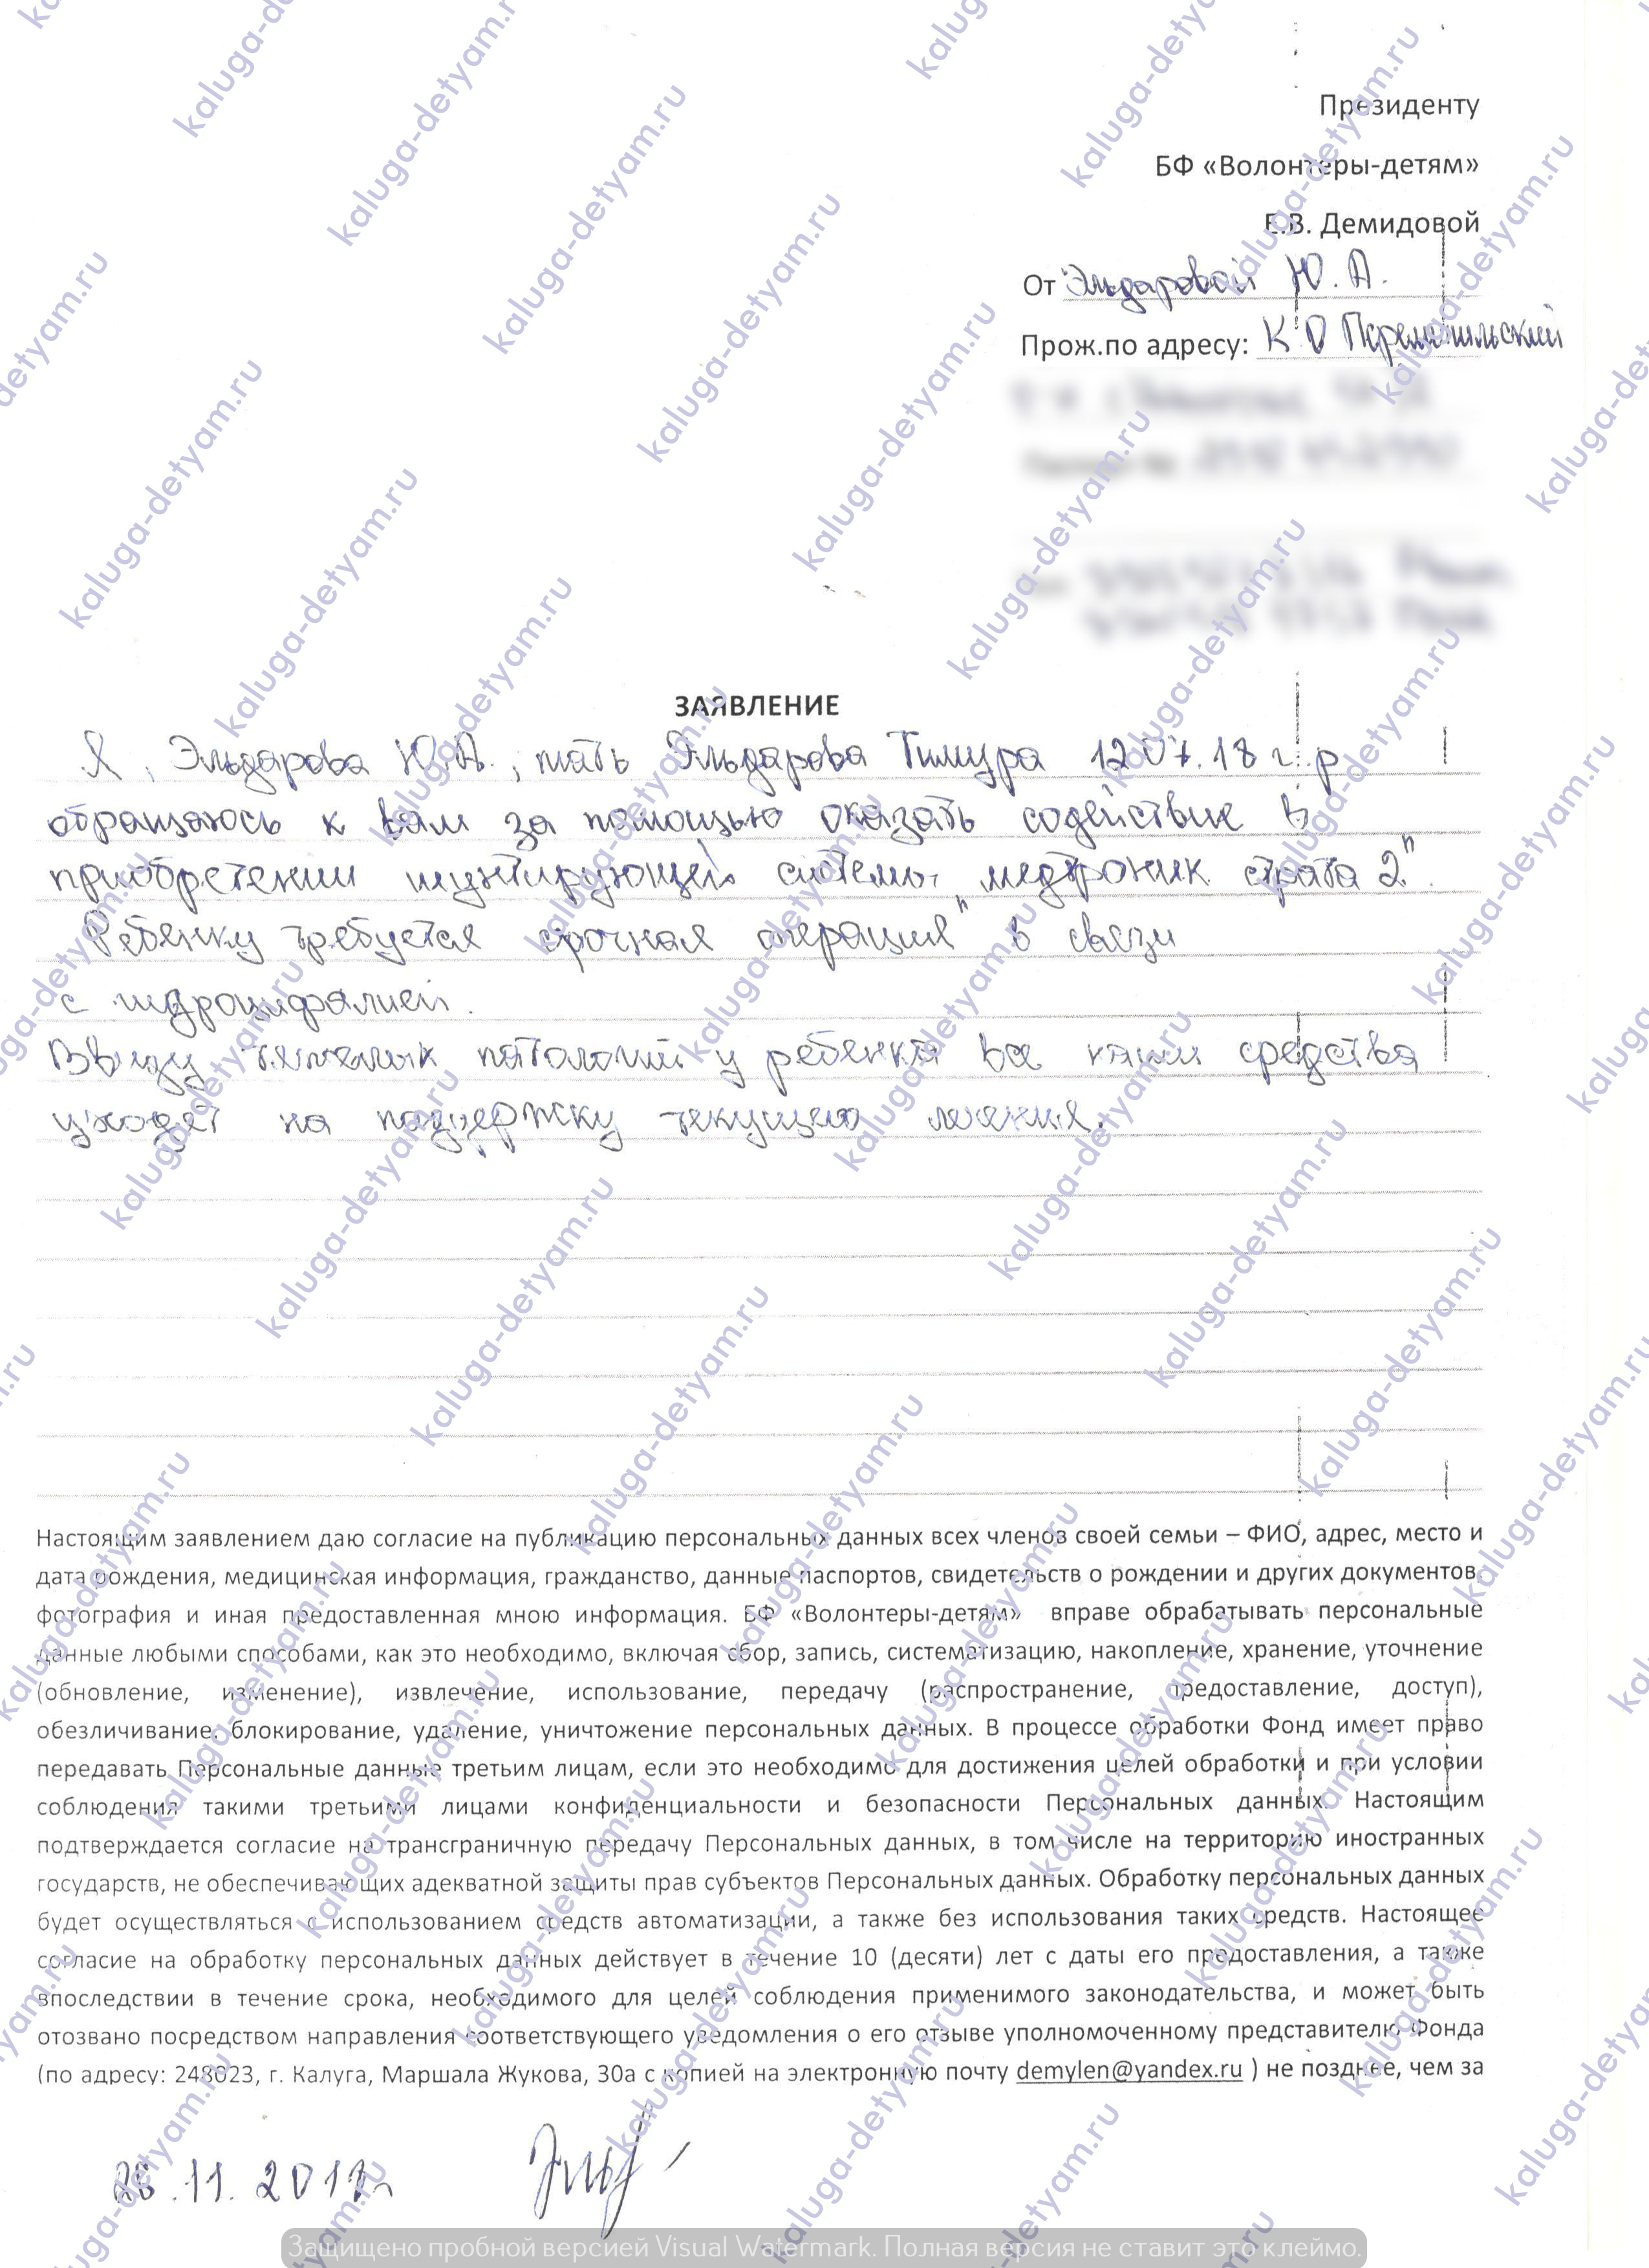 Президенту
БФ «Волонтеры-детям»
Е.В. Демидовой
От Эльдаровой Ю.А.
Прож.по адресу: К О Перемышльский
ЗАЯВЛЕНИЕ
Я, Эльдарова Ю.А., мать Эльдарова Тимура 12 07.18 г.р
обращаюсь к вам за помощью оказать содействие в
приобретении шунтирующей системы "медтроник страта 2".
Ребенку требуется срочная операция в связи
с гидроцифалией.
Ввиду патологий у ребенка все наши средства
уходят на поддержку текущего лечения.
Настоящим заявлением даю согласие на публикацию персональных данных всех членов своей семьи – ФИО, адрес, место и
дата рождения, медицинская информация, гражданство, данные паспортов, свидетельств о рождении и других документов,
фотография и иная предоставленная мною информация. БФ «Волонтеры-детям» вправе обрабатывать персональные
данные любыми способами, как это необходимо, включая сбор, запись, систематизацию, накопление, хранение, уточнение
(обновление, изменение), извлечение, использование, передачу (распространение, предоставление, доступ),
обезличивание, блокирование, удаление, уничтожение персональных данных. В процессе обработки Фонд имеет право
передавать Персональные данные третьим лицам, если это необходимо для достижения целей обработки и при условии
соблюдения такими третьими лицами конфиденциальности и безопасности Персональных данных. Настоящим
подтверждается согласие на трансграничную передачу Персональных данных, в том числе на территорию иностранных
государств, не обеспечивающих адекватной защиты прав субъектов Персональных данных. Обработку персональных данных
будет осуществляться с использованием средств автоматизации, а также без использования таких средств. Настоящее
согласие на обработку персональных данных действует в течение 10 (десяти) лет с даты его предоставления, а также
впоследствии в течение срока, необходимого для целей соблюдения применимого законодательства, и может быть
отозвано посредством направления соответствующего уведомления о его отзыве уполномоченному представителю Фонда
(по адресу: 248023, г. Калуга, Маршала Жукова, 30а с копией на электронную почту demylen@yandex.ru ) не позднее, чем за
Защищено пробной версией Visual Watermark. Полная версия не ставит это клеймо.
kaluga-detyam.ru